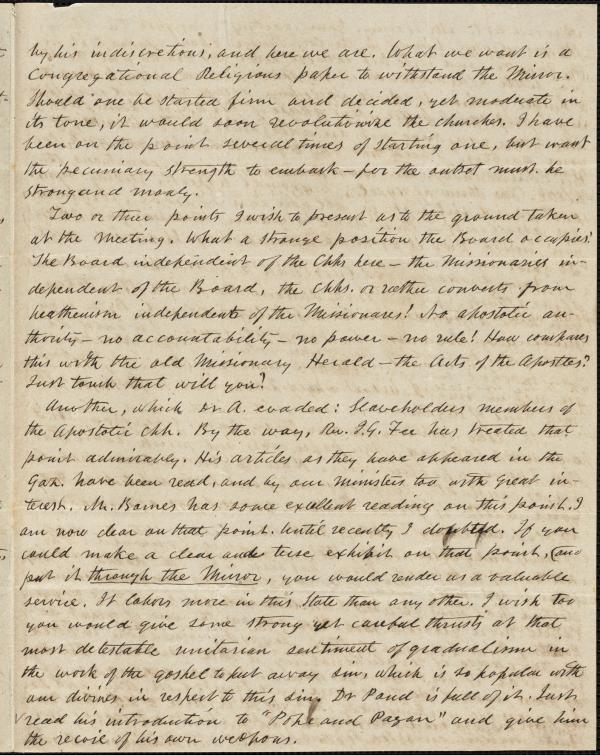 by his indiscretions; and here we are. What we want is a
Congregational Religious paper to withstand the Mirror.
Should one be started firm and decided, yet moderate in
its tone, it would soon revolutionize the churches. I have
been on the point several times of starting one, but want
the pecuniary strength to embark – for the outset must be
strong and manly.
Two or three points I wish to present as to the ground taken
at the meeting. What a strange position the Board occupies!
The Board independent of the Chhs here – the Missionaries in-
dependent of the Board, the chhs. or rather converts from
heathenism independent of the Missionaries! No apostolic au-
thority – no accountability – no power – no rule! How compares
this with the old Missionary Herald – the Acts of the Apostles?
Just touch that will you?
Another, which Dr A. evaded: Slaveholders members of
the Apostolic Chh. By the way, Rev. J.G. Fee has treated that
point admirably. His articles as they have appeared in the
Gaz. have been read, and by our ministers too with great in-
terest. Mr. Barnes has some excellent reading on this point. I
am now clear on that point. Until recently I doubted. If you
could make a clear and terse exhibit on that point, (and
put it through the Mirror, you would render us a valuable
service. It labors more in this State than any other. I wish too
you would give some strong yet careful thrusts at that
most detestable unitarian sentiment of gradualism in
the work of the gospel to put away sin, which is so popular with
our divines in respect to this sin. Dr Pond is full of it. Just
read his introduction to "Pope and Pagan" and give him
the of his own weapons.